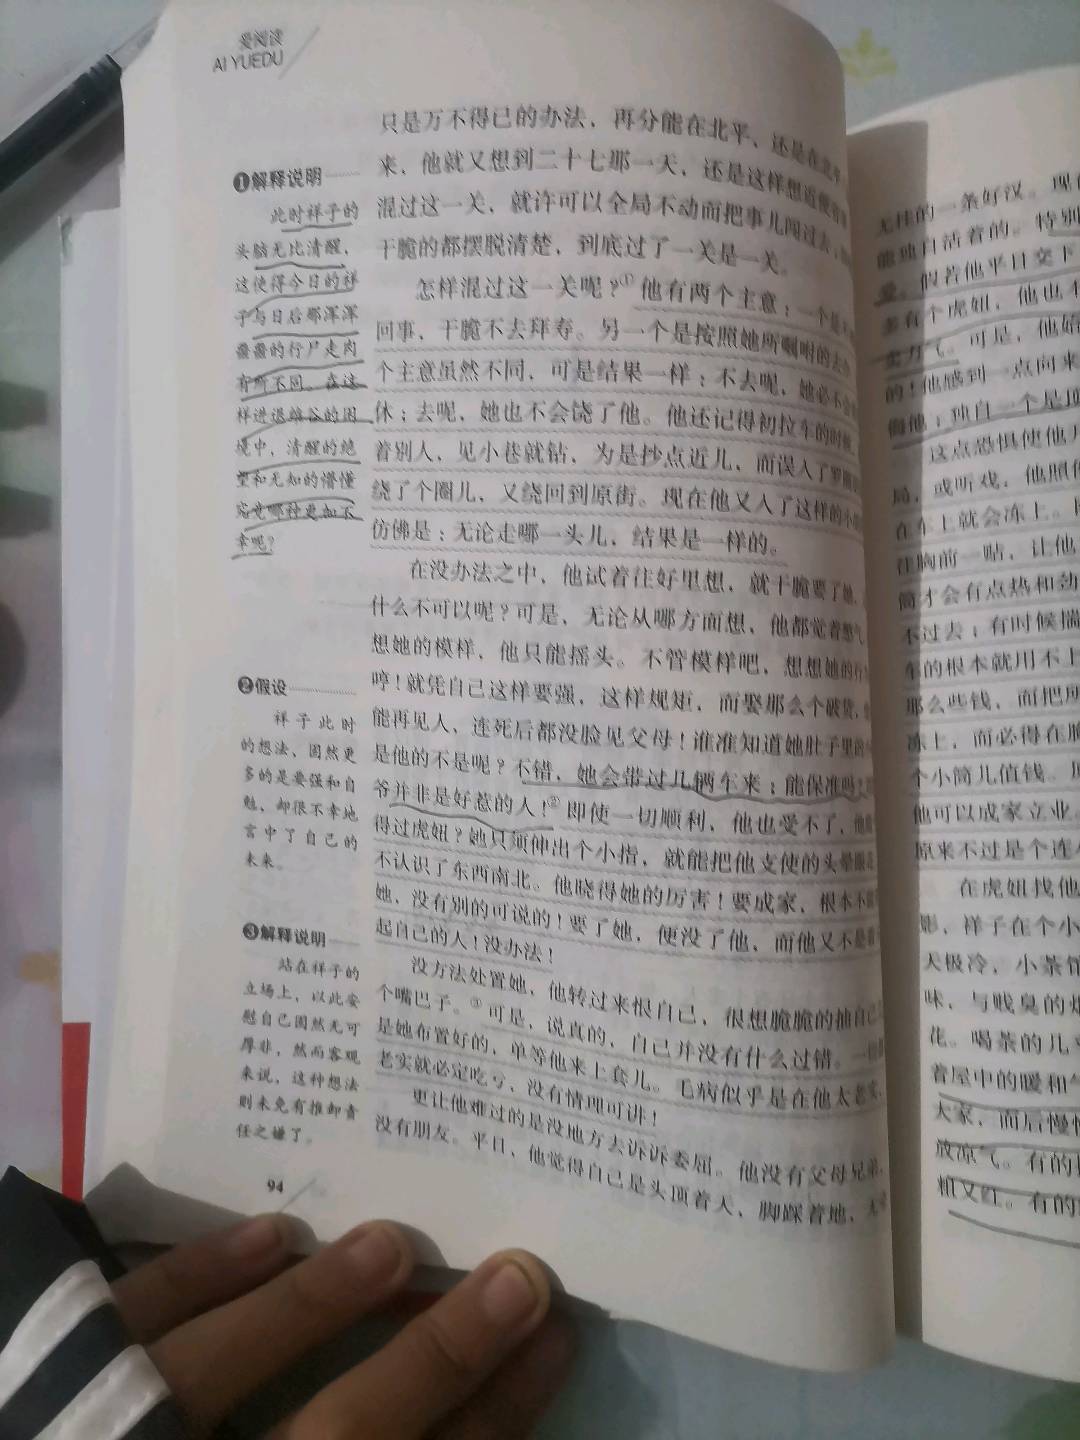 爱阅读
AI YUEDU
只是万不得已的办法，再分能在北平，还是在北平
来，他就又想到二十七那一天，还是这样想近便省事
混过这一关，就许可以全局不动而把事儿闯过去；
干脆的都摆脱清楚，到底过了一关是一关。
怎样混过这一关呢？①他有两个主意：一个是不
回事，干脆不去拜寿。另一个是按照她所嘱咐的去办
个主意虽然不同，可是结果一样：不去呢，她必不会
休；去呢，她也不会饶了他。他还记得初拉车的时候，
着别人，见小巷就钻，为是抄点近儿，而误入了罗圈
绕了个圈儿，又绕回到原街。现在他又入了这样的小
仿佛是：无论走哪一头儿，结果是一样的。
在没办法之中，他试着往好里想，就干脆要了她，
什么不可以呢？可是，无论从哪方面想，他都觉着憋气
想她的模样，他只能摇头。不管模样吧，想想她的行
哼！就凭自己这样要强，这样规矩，而娶那么个破货，
能再见人，连死后都没脸见父母！谁准知道她肚子里的
是他的不是呢？不错，她会带过几辆车来；能保准吗？
爷并非是好惹的人！②即使一切顺利，他也受不了，他
得过虎妞？她只须伸出个小指，就能把他支使的头晕眼花
不认识了东西南北。他晓得她的厉害！要成家，根本不
她，没有别的可说的！要了她，便没了他，而他又不是
起自己的人！没办法！
没方法处置她，他转过来恨自己，很想脆脆的抽自己
个嘴巴子。③可是，说真的，自己并没有什么过错。一
是她布置好的，单等他来上套儿。毛病似乎是在他太老实，
老实就必定吃亏，没有情理可讲！
更让他难过的是没地方去诉诉委屈。他没有父母兄弟，
没有朋友。平日，他觉得自己是头顶着天，脚踩着地，
❶解释说明
此时祥子的
头脑无比清醒，
这使得今日的祥
子与日后那浑浑
噩噩的行尸走肉
有所不同。在这
样进退维谷的困
境中，清醒的绝
望和无知的懵懂
究竟哪种更加不
幸呢？
❷假设
祥子此时
的想法，固然更
多的是要强和自
勉，却很不幸地
言中了自己的
未来。
❸解释说明
站在祥子的
立场上，以此安
慰自己固然无可
厚非，然而客观
来说，这种想法
则未免有推卸责
任之嫌了。
94
无挂的一条好汉。现
能独自活着的。特别
爱。假若他平日交下
多有个虎妞，他也
卖力气。可是，他始
的！他感到一点向来
侮他；独自一个是顶
这点恐惧使他
局，或听戏，他照
在车上就会冻上。
往胸前一贴，让他
筒才会有点热和劲
不过去；有时候揣
车的根本就用不上
那么些钱，而把
冻上，而必得在胸
个小筒儿值钱。
他可以成家立业
原来不过是个连
在虎妞找他
影，祥子在个小
天极冷，小茶馆
味，与贱臭的烟
花。喝茶的几乎
着屋中的暖和气
大家，而后慢慢
放凉气。有的
粗又红。有的